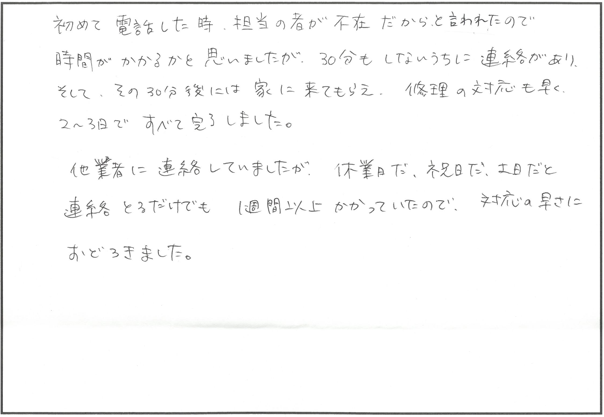 初めて電話した時、担当の者が不在だからと言われたので
時間がかかるかと思いましたが、30分もしないうちに連絡があり、
そして、その30分後には家に来てもらえ、修理の対応も早く、
2〜3日ですべて完了しました。
他業者に連絡していましたが、休業日だ、祝日だ、土日だと
連絡とるだけでも1週間以上かかっていたので、対応の早さに
おどろきました。